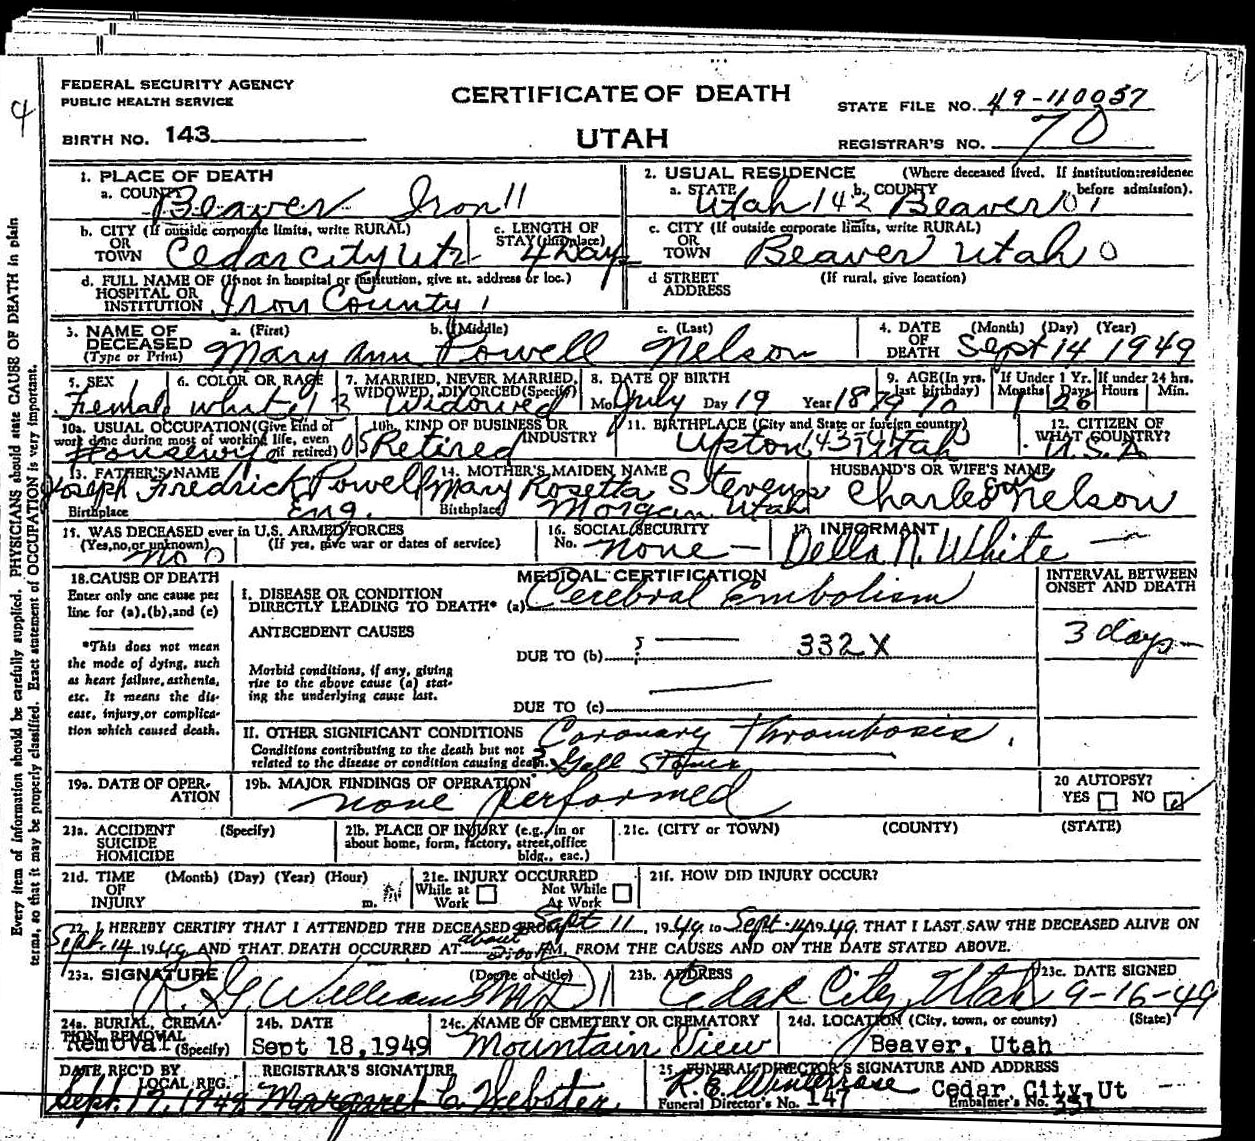 FEDERAL SECURITY AGENCY
PUBLIC HEALTH SERVICE
BIRTH NO. 143
CERTIFICATE OF DEATH
UTAH
STATE FILE NO. 49-110057
REGISTRAR'S NO. 70
4
Every item of information should be carefully supplied. PHYSICIANS should state CAUSE OF DEATH in plain
terms, so that it may be properly classified. Exact statement of OCCUPATION is very important.
1. PLACE OF DEATH
a. COUNTY Beaver Iron 11
2. USUAL RESIDENCE (Where deceased lived. If institution:residence before admission).
a. STATE Utah 142 b. COUNTY Beaver 01
b. CITY (If outside corporate limits, write RURAL) OR TOWN Cedar City Ut
c. LENGTH OF STAY (this place) 4 Days
c. CITY (If outside corporate limits, write RURAL) OR TOWN Beaver Utah 0
d. FULL NAME OF (If not in hospital or institution, give st. address or loc.) HOSPITAL OR INSTITUTION Iron County 1
d STREET ADDRESS (If rural, give location)
3. NAME OF DECEASED (Type or Print) a. (First) Mary Ann b. (Middle) Powell c. (Last) Nelson
4. DATE OF DEATH (Month) (Day) (Year) Sept 14 1949
5. SEX Female
6. COLOR OR RACE white 1
7. MARRIED, NEVER MARRIED, WIDOWED, DIVORCED (Specify) Widowed
8. DATE OF BIRTH Mo. July Day 19 Year 1879
9. AGE (In yrs. last birthday) 70
If Under 1 Yr. Months 1 Days 26
If under 24 hrs. Hours Min.
10a. USUAL OCCUPATION (Give kind of work done during most of working life, even if retired) Housewife
10b. KIND OF BUSINESS OR INDUSTRY Retired
11. BIRTHPLACE (City and State or foreign country) Upton 143 Utah
12. CITIZEN OF WHAT COUNTRY? U.S.A
13. FATHER'S NAME Joseph Fredrick Powell
Birthplace Eng.
14. MOTHER'S MAIDEN NAME Mary Rosetta Stevens
Birthplace Morgan Utah
HUSBAND'S OR WIFE'S NAME
Charles Nelson
15. WAS DECEASED ever in U.S. ARMED FORCES
(Yes, no, or unknown) no 0 (If yes, give war or dates of service)
16. SOCIAL SECURITY No. none
17. INFORMANT
Della N. White
18. CAUSE OF DEATH
Enter only one cause per line for (a), (b), and (c)
*This does not mean the mode of dying, such as heart failure, asthenia, etc. It means the disease, injury, or complication which caused death.
MEDICAL CERTIFICATION
I. DISEASE OR CONDITION DIRECTLY LEADING TO DEATH* (a) Cerebral Embolism
ANTECEDENT CAUSES
DUE TO (b) ? 332X
Morbid conditions, if any, giving rise to the above cause (a) stating the underlying cause last.
DUE TO (c)
INTERVAL BETWEEN ONSET AND DEATH
3 days
II. OTHER SIGNIFICANT CONDITIONS
Conditions contributing to the death but not related to the disease or condition causing death.
Coronary Thrombosis
Gall Stones
19a. DATE OF OPERATION
19b. MAJOR FINDINGS OF OPERATION
none performed
20 AUTOPSY?
YES NO ✓
21a. ACCIDENT SUICIDE HOMICIDE (Specify)
21b. PLACE OF INJURY (e.g., in or about home, form, factory, street, office bldg., eac.)
21c. (CITY or TOWN) (COUNTY) (STATE)
21d. TIME OF INJURY (Month) (Day) (Year) (Hour) m.
21e. INJURY OCCURRED
While at Work Not While At Work
21f. HOW DID INJURY OCCUR?
22. I HEREBY CERTIFY THAT I ATTENDED THE DECEASED FROM Sept 11, 1949 TO Sept. 14, 1949, THAT I LAST SAW THE DECEASED ALIVE ON
Sept. 14 1949 AND THAT DEATH OCCURRED AT about M. FROM THE CAUSES AND ON THE DATE STATED ABOVE.
23a. SIGNATURE (Degree or title) R. G. Williams MD
23b. ADDRESS Cedar City, Utah
23c. DATE SIGNED 9-16-49
24a. BURIAL, CREMATION, REMOVAL (Specify) Removal
24b. DATE Sept 18, 1949
24c. NAME OF CEMETERY OR CREMATORY Mountain View
24d. LOCATION (City, town, or county) (State) Beaver, Utah
DATE REC'D BY LOCAL REG. Sept. 19, 1949
REGISTRAR'S SIGNATURE Margaret C. Webster
25. FUNERAL DIRECTOR'S SIGNATURE AND ADDRESS
R.E. Winterrose Cedar City Ut
Funeral Director's No. 147 Embalmer's No. 331